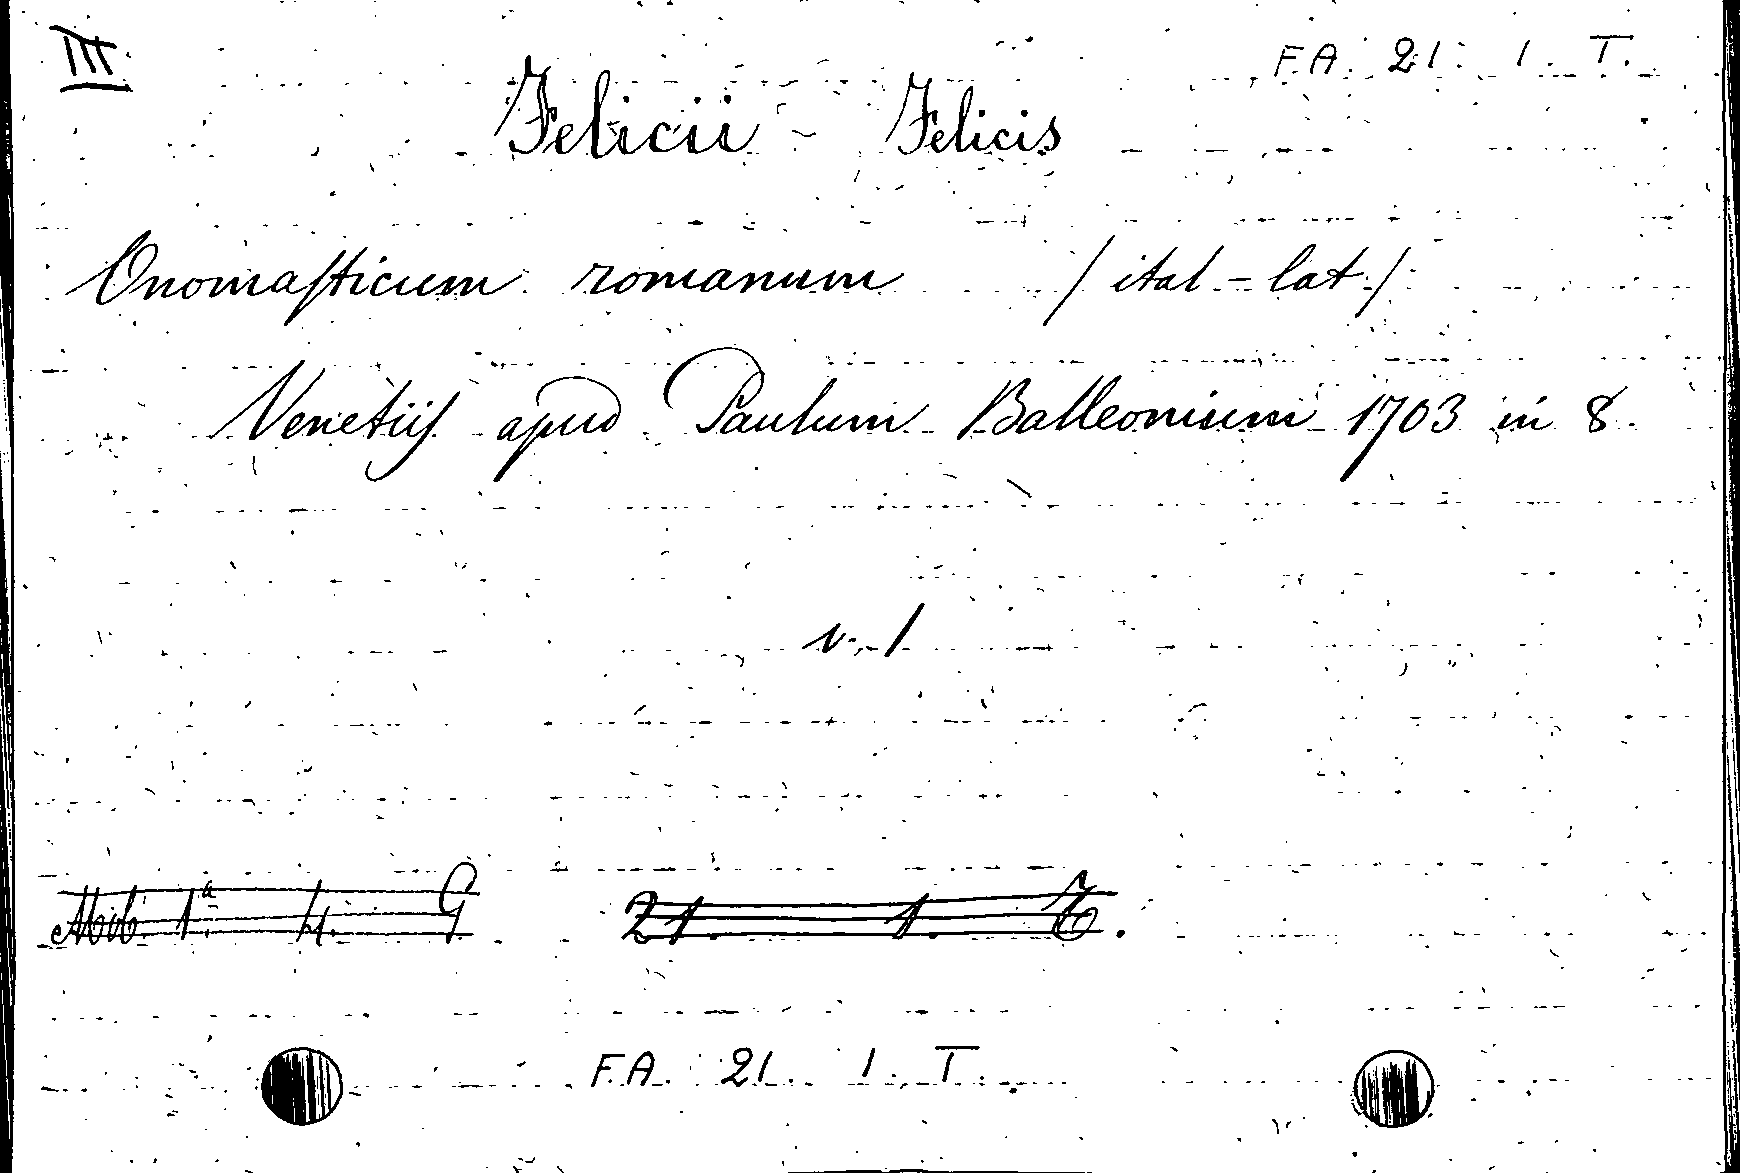 III
F.A. 21. 1. T.
Felicii - Felicis
Onomasticum romanum / ital - lat /
Venetiis apud Paulum Balleonium 1703 in 8.
v. 1
Mib. 1.ª 4. G 21. 1. T.
F.A. 21. 1. T.